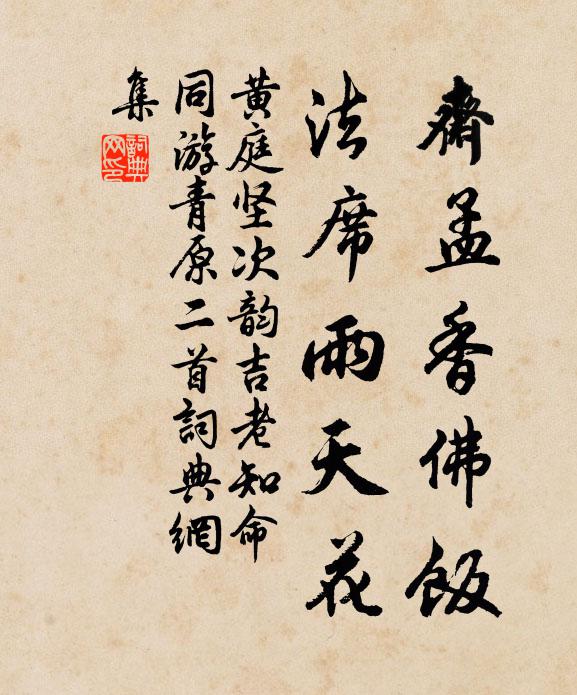 齋盂香佛飯
法席雨天花
黄庭坚次韵吉老知命
同游青原二首詞典網
集
詞典
网印